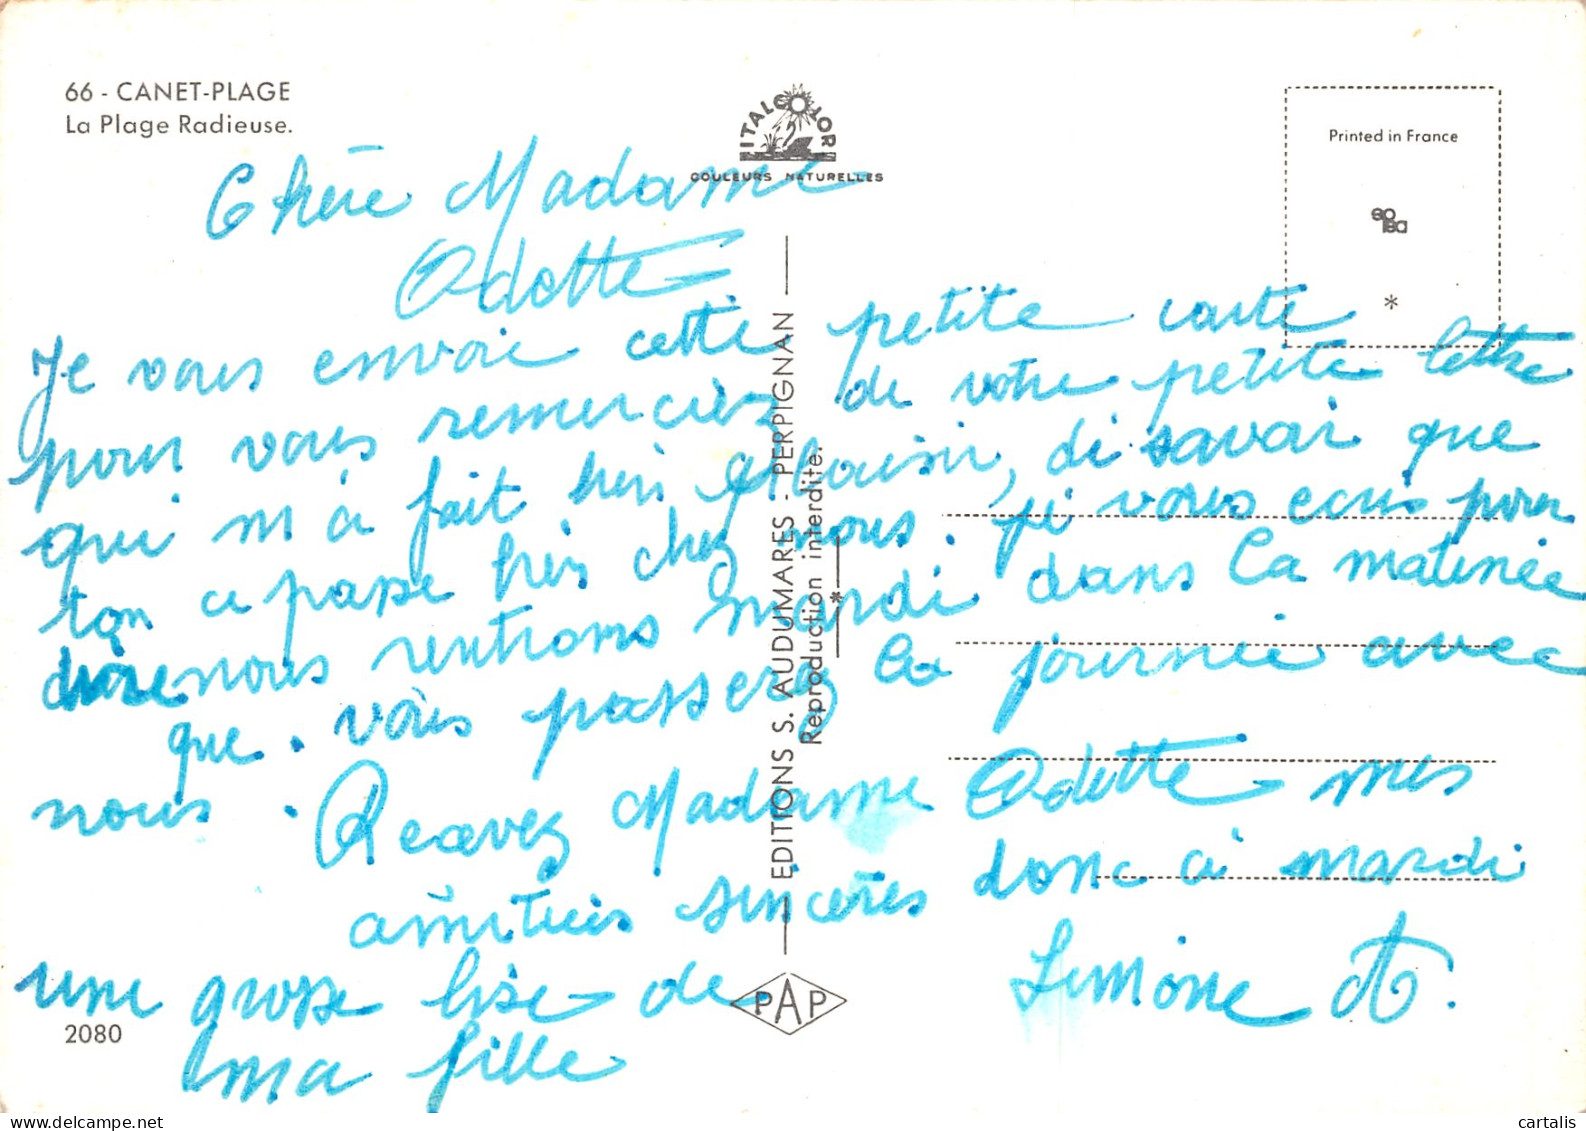 66 - CANET-PLAGE
La Plage Radieuse.
ITALCOLOR
COULEURS NATURELLES
Printed in France
*
Chère Madame
Odette
Je vous envoie cette petite carte
pour vous remerciez de votre petite lettre
qui m'a fait très plaisir, di savoir que
tou ce passe très chez nous. je vous ecris pour
dire nous rentrons mardi dans la matinée
que vous passerez la journée avec
nous. Recevez Madame Odette mes
amitiés sincères donc a mardi
une grosse bise de Simone A.
ma fille
EDITIONS S. AUDUMARES - PERPIGNAN
Reproduction interdite.
*
PAP
2080
cartalis
www.delcampe.net